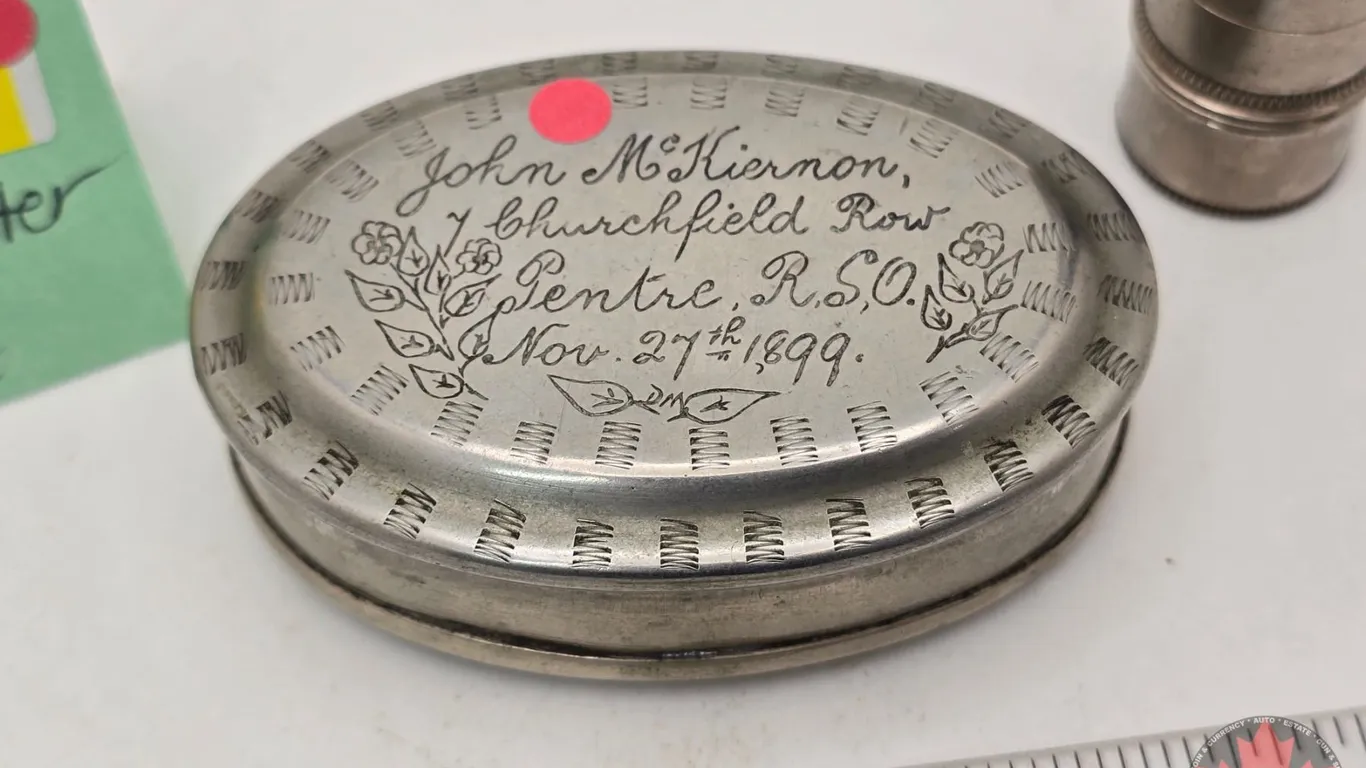 John McKiernon,
7 Churchfield Row
Pentre, R.S.O.
Nov. 27th 1899.
DM
CURRENCY • AUTO • ESTATE •